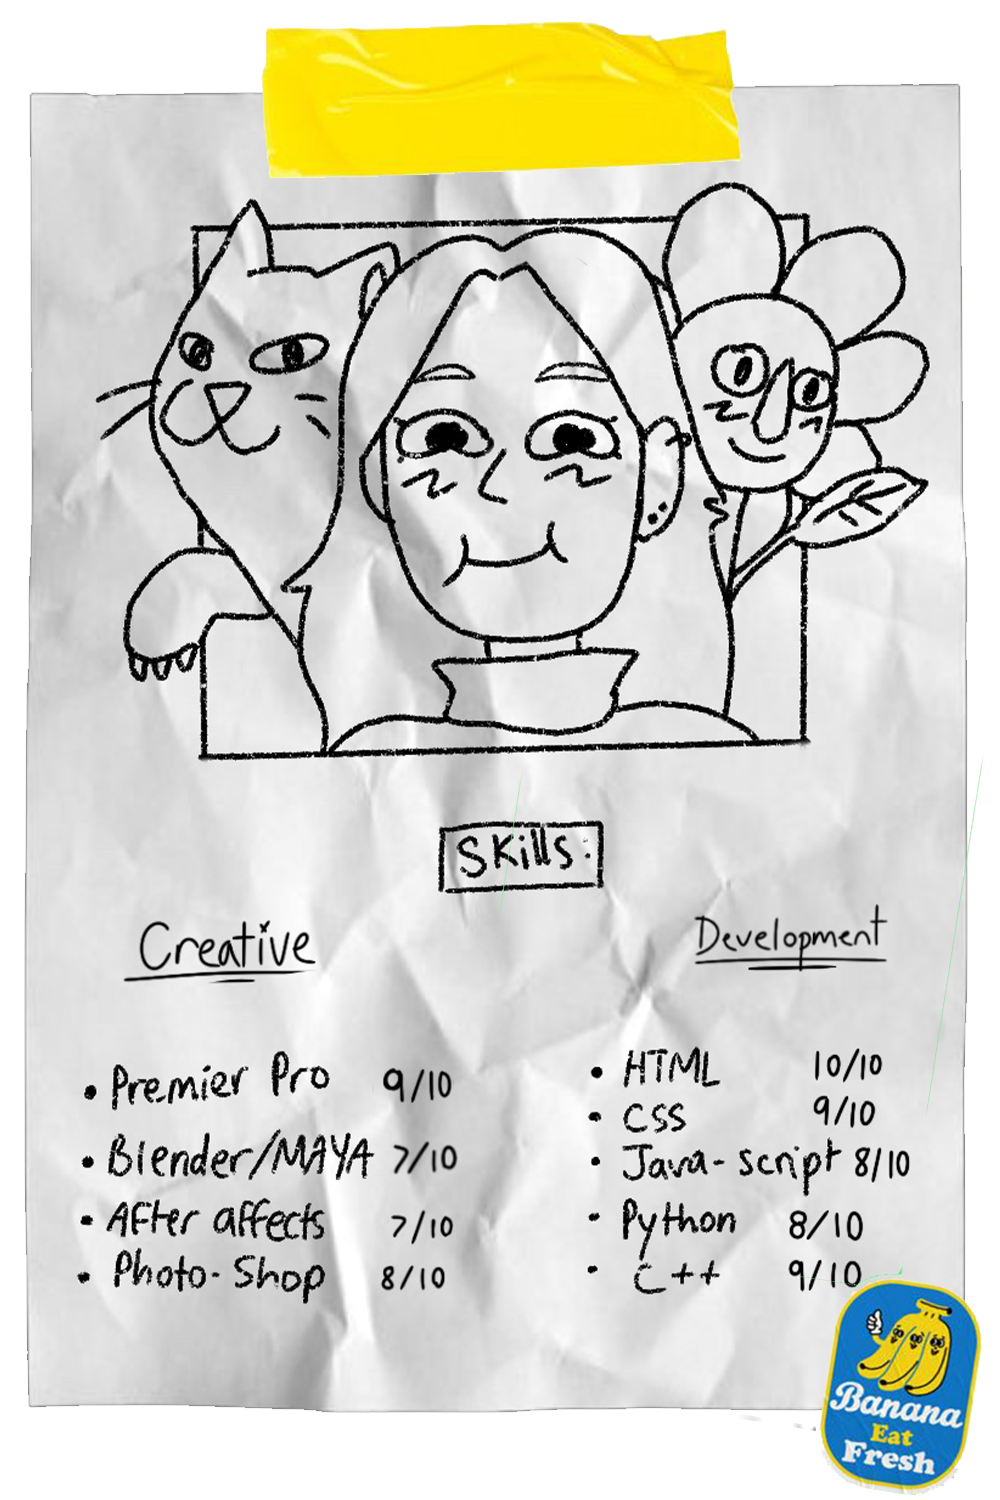 Skills:
Creative
• Premier Pro 9/10
• Blender/MAYA 7/10
• After affects 7/10
• Photo-Shop 8/10
Development
• HTML 10/10
• CSS 9/10
• Java-script 8/10
• Python 8/10
• C++ 9/10
Banana
Eat
Fresh